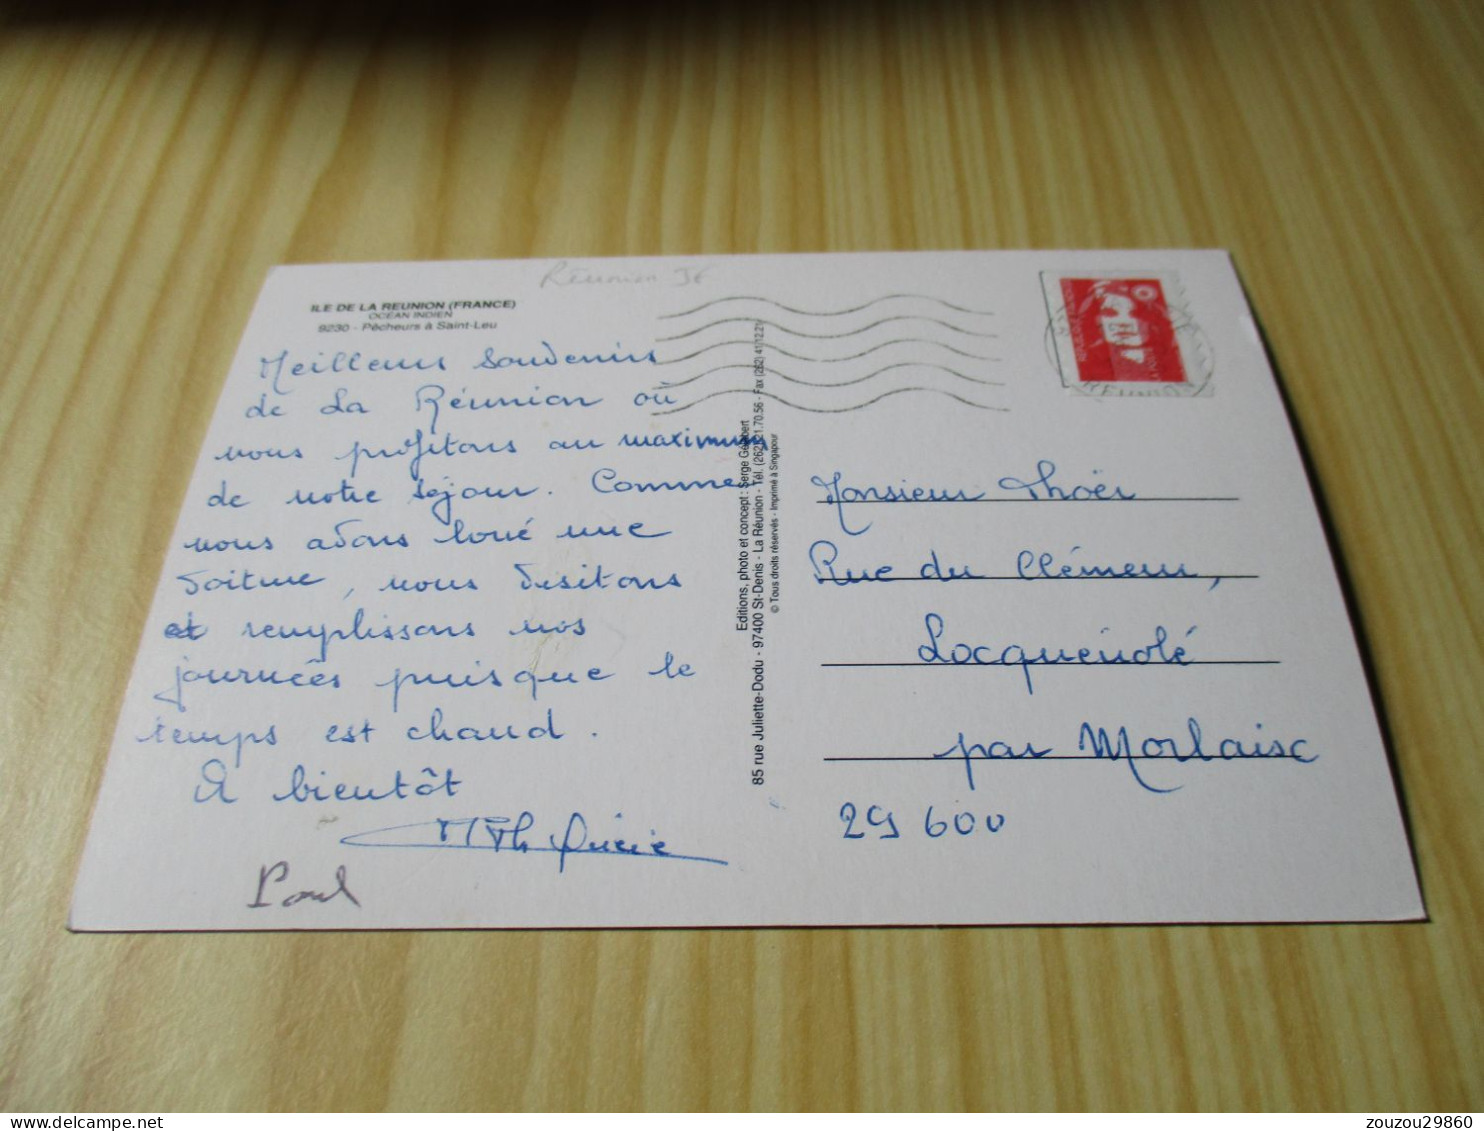 Réunion 3€
ILE DE LA REUNION (FRANCE)
OCEAN INDIEN
9230 - Pêcheurs à Saint-Leu
Meilleurs Souvenirs
de la Réunion où
nous profitons au maximum
de notre séjour. Comme
nous avons loué une
voiture, nous visitons
et remplissons nos
journées puisque le
temps est chaud.
A bientôt
Paul
Editions, photo et concept : Serge Gélabert
85 rue Juliette-Dodu - 97400 St-Denis - La Réunion - Tél. (262) 21.70.56 - Fax (262) 41.12.21
© Tous droits réservés - Imprimé à Singapour
Monsieur Thoër
Rue du Clémeur,
Locquénolé
par Morlaix
29 600
zouzou29860